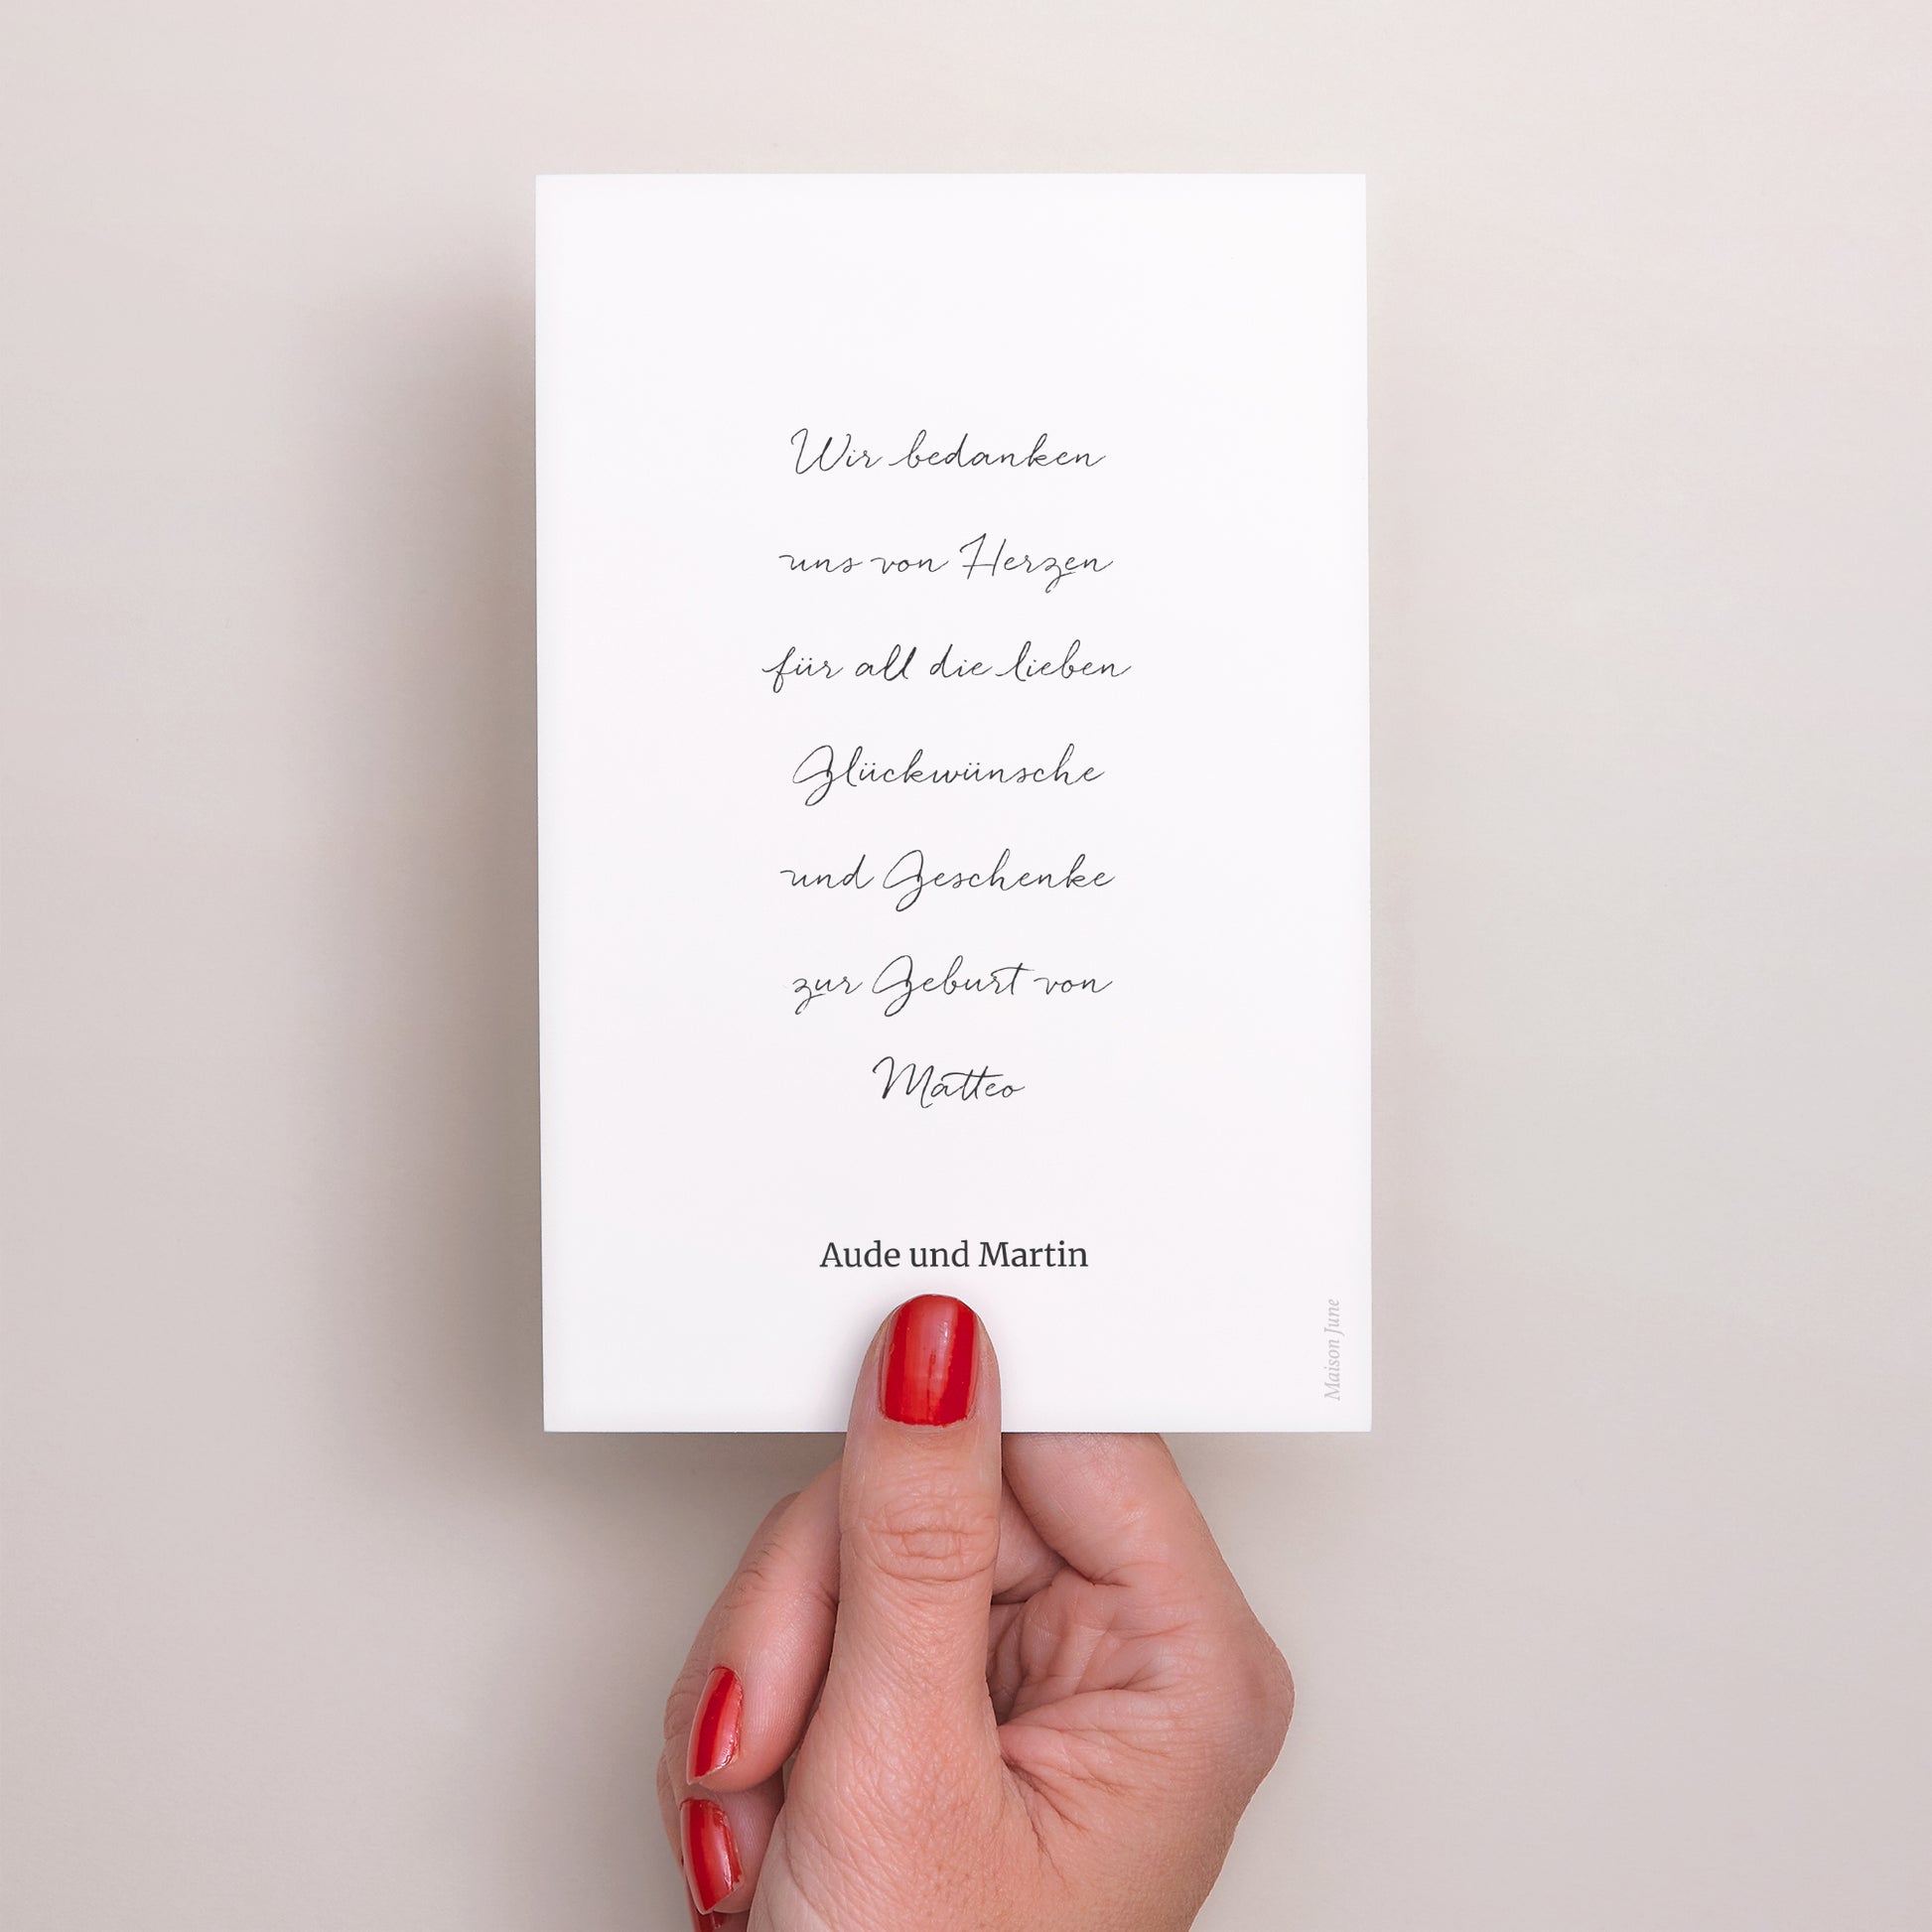 Wir bedanken
uns von Herzen
für all die lieben
Glückwünsche
und Geschenke
zur Geburt von
Matteo
Aude und Martin
Maison June